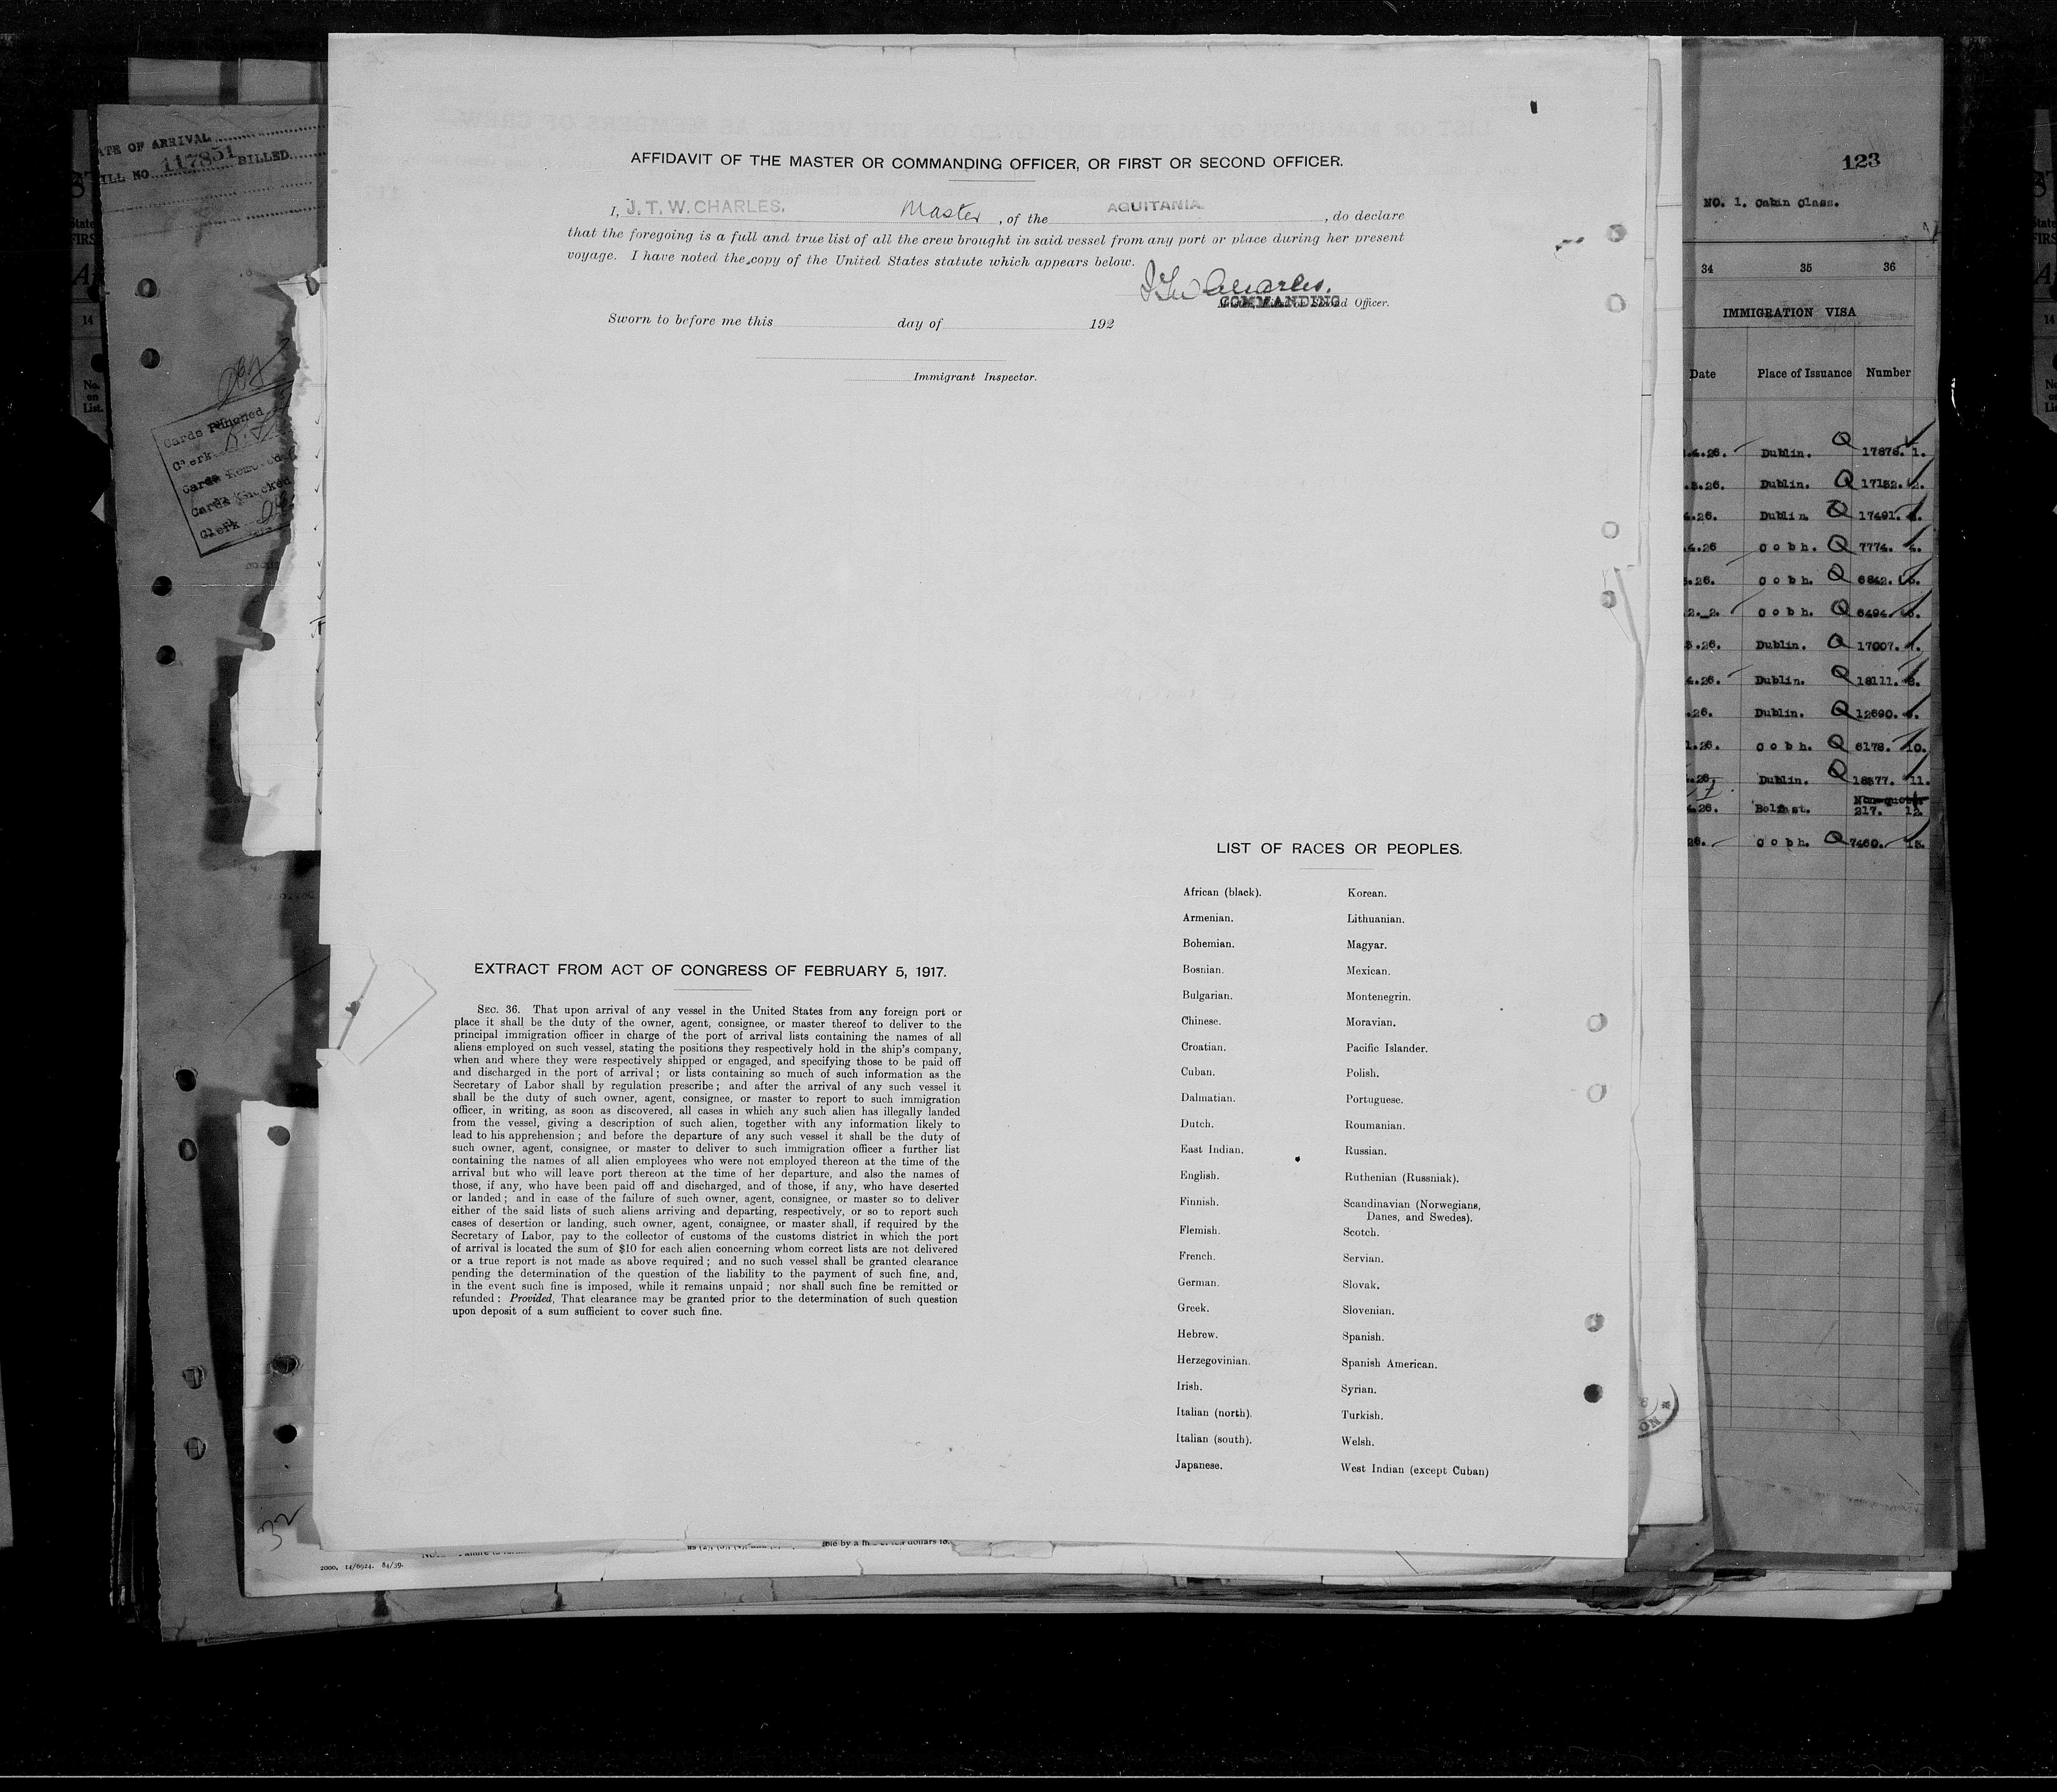 AFFIDAVIT OF THE MASTER OR COMMANDING OFFICER, OR FIRST OR SECOND OFFICER.
I, J. T. W. CHARLES. Master, of the AQUITANIA, do declare
that the foregoing is a full and true list of all the crew brought in said vessel from any port or place during her present
voyage. I have noted the copy of the United States statute which appears below.
COMMANDING Officer.
Sworn to before me this day of 192
Immigrant Inspector.
EXTRACT FROM ACT OF CONGRESS OF FEBRUARY 5, 1917.
SEC. 36. That upon arrival of any vessel in the United States from any foreign port or
place it shall be the duty of the owner, agent, consignee, or master thereof to deliver to the
principal immigration officer in charge of the port of arrival lists containing the names of all
aliens employed on such vessel, stating the positions they respectively hold in the ship's company,
when and where they were respectively shipped or engaged, and specifying those to be paid off
and discharged in the port of arrival; or lists containing so much of such information as the
Secretary of Labor shall by regulation prescribe; and after the arrival of any such vessel it
shall be the duty of such owner, agent, consignee, or master to report to such immigration
officer, in writing, as soon as discovered, all cases in which any such alien has illegally landed
from the vessel, giving a description of such alien, together with any information likely to
lead to his apprehension; and before the departure of any such vessel it shall be the duty of
such owner, agent, consignee, or master to deliver to such immigration officer a further list
containing the names of all alien employees who were not employed thereon at the time of the
arrival but who will leave port thereon at the time of her departure, and also the names of
those, if any, who have been paid off and discharged, and of those, if any, who have deserted
or landed; and in case of the failure of such owner, agent, consignee, or master so to deliver
either of the said lists of such aliens arriving and departing, respectively, or so to report such
cases of desertion or landing, such owner, agent, consignee, or master shall, if required by the
Secretary of Labor, pay to the collector of customs of the customs district in which the port
of arrival is located the sum of $10 for each alien concerning whom correct lists are not delivered
or a true report is not made as above required; and no such vessel shall be granted clearance
pending the determination of the question of the liability to the payment of such fine, and,
in the event such fine is imposed, while it remains unpaid; nor shall such fine be remitted or
refunded: Provided, That clearance may be granted prior to the determination of such question
upon deposit of a sum sufficient to cover such fine.
LIST OF RACES OR PEOPLES.
African (black). Korean.
Armenian. Lithuanian.
Bohemian. Magyar.
Bosnian. Mexican.
Bulgarian. Montenegrin.
Chinese. Moravian.
Croatian. Pacific Islander.
Cuban. Polish.
Dalmatian. Portuguese.
Dutch. Roumanian.
East Indian. Russian.
English. Ruthenian (Russniak).
Finnish. Scandinavian (Norwegians,
Danes, and Swedes).
Flemish. Scotch.
French. Servian.
German. Slovak.
Greek. Slovenian.
Hebrew. Spanish.
Herzegovinian. Spanish American.
Irish. Syrian.
Italian (north). Turkish.
Italian (south). Welsh.
Japanese. West Indian (except Cuban)
ATE OF ARRIVAL
ILL NO. 117851 BILLED
Cards Punched
Clerk
Cards Removed
Cards Knocked
Clerk
32
2000. 14/6924. 84/39.
123
NO. 1. Cabin Class.
34 35 36
IMMIGRATION VISA
Date Place of Issuance Number
.4.26. Dublin. Q 17878. 1.
.26. Dublin. Q 17152. 2.
.26. Dublin. Q 17491.
.4.26 Cobh. Q 7774. 4.
.26. Cobh. Q 6842.
Cobh. Q 6494.
.26. Dublin. Q 17007.
.4.26. Dublin. Q 18111.
.26. Dublin. Q 12690.
1.26. Cobh. Q 6178. 10.
.26. Dublin. Q 11.
.26. Belfast. Non-quota
217. 12.
26. Cobh. Q 7460. 13.